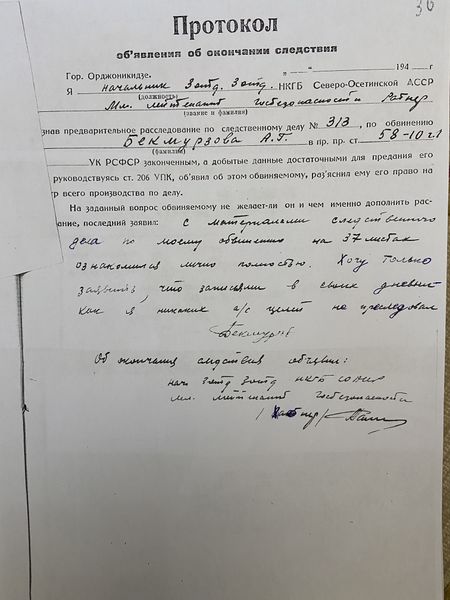 36
Протокол
об'явления об окончании следствия
Гор. Орджоникидзе. „ — " 194 г
Я начальник 3 отд. 3 отд. НКГБ Северо-Осетинской АССР
(должность)
Мл. лейтенант госбезопасности Ратнер
(звание и фамилия)
знав предварительное расследование по следственному делу № 313, по обвинению
Бекмурзова А.Г. в пр. пр. ст 58-10 ч1
(фамилия)
УК РСФСР законченным, а добытые данные достаточными для предания его
руководствуясь ст. 206 УПК, об'явил об этом обвиняемому, раз'яснил ему его право на
р всего производства по делу.
На заданный вопрос обвиняемому не желает-ли он и чем именно дополнить рас-
ание, последний заявил: с материалами следственного
дела по моему обвинению на 37 листах
ознакомился лично полностью. Хочу только
заявить, что записями в своих дневник
как я никаких а/с целей не преследовал
Бекмурз
Об окончании следствия объявил:
нач 3 отд 3 отд НКГБ СОАССР
мл. лейтенант госбезопасности